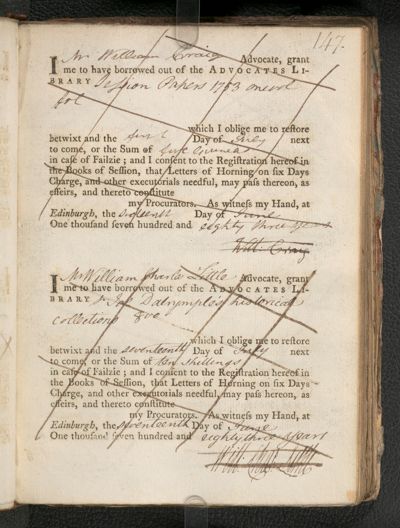 147.
I Mr William Craig Advocate, grant
me to have borrowed out of the ADVOCATES LI-
BRARY Session Papers 1753 one vol
fol
which I oblige me to restore
betwixt and the first Day of July next
to come, or the Sum of five Guineas
in case of Failzie; and I consent to the Registration hereof in
the Books of Session, that Letters of Horning on six Days
Charge, and other executorials needful, may pass thereon, as
effeirs, and thereto constitute
my Procurators. As witness my Hand, at
Edinburgh, the Day of June
One thousand seven hundred and eighty three years
Will: Craig
I Mr William Charles Little Advocate, grant
me to have borrowed out of the ADVOCATES LI-
BRARY Dalrymple's historical
collections 8vo
which I oblige me to restore
betwixt and the seventeenth Day of July next
to come, or the Sum of ten Shillings
in case of Failzie; and I consent to the Registration hereof in
the Books of Session, that Letters of Horning on six Days
Charge, and other executorials needful, may pass hereon, as
effeirs, and thereto constitute
my Procurators. As witness my Hand, at
Edinburgh, the seventeenth Day of June
One thousand seven hundred and eighty three years
Will: Chas: Little